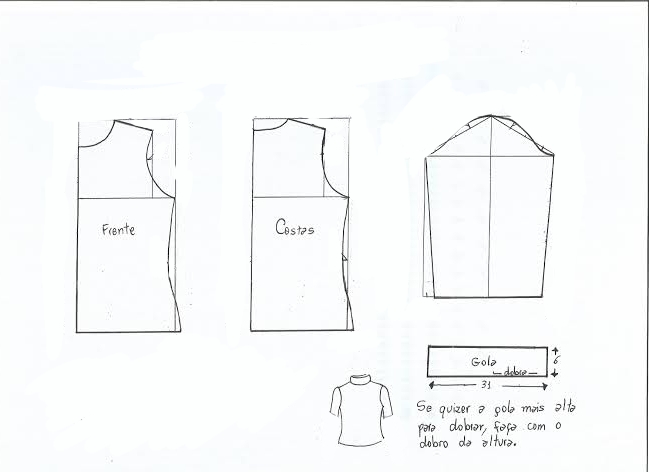 Frente
Costas
Gola
dobra
6
31
Se quizer a gola mais alta
para dobrar, faça com o
dobro da altura.